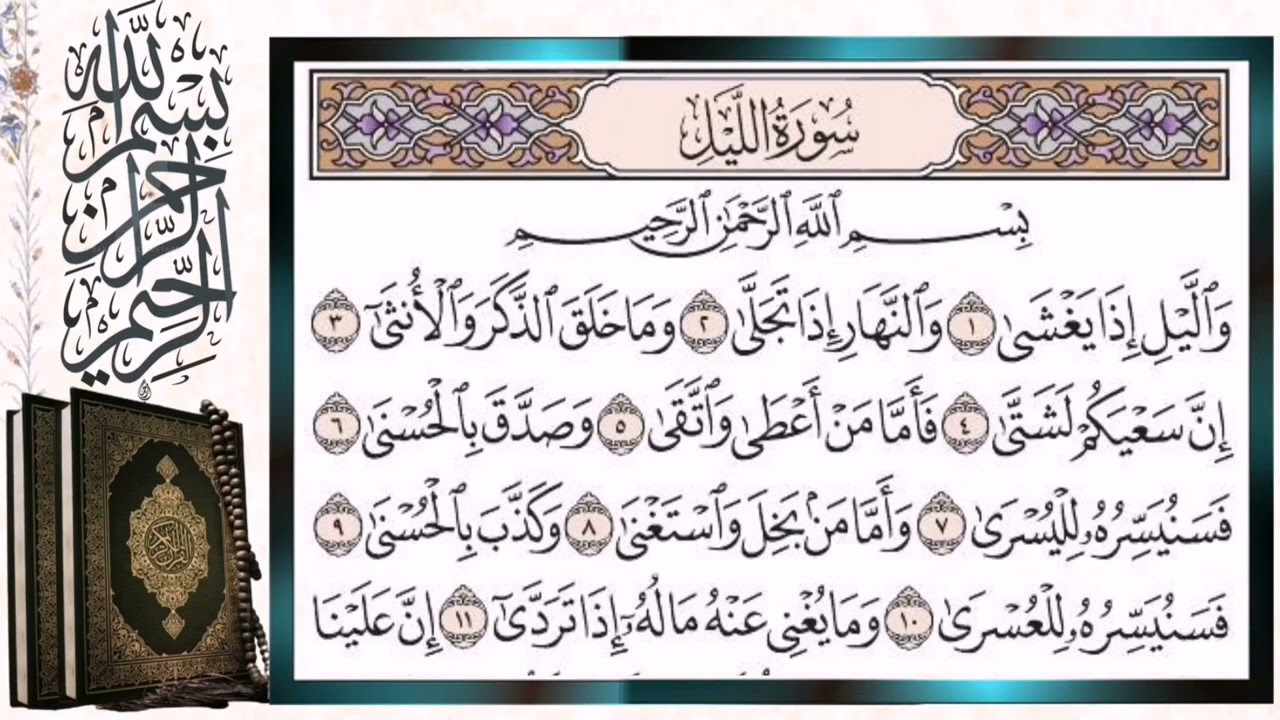 بسم الله الرحمن الرحيم
سُورَةُ اللَّيْلِ
بِسْمِ ٱللَّهِ ٱلرَّحْمَٰنِ ٱلرَّحِيمِ
وَٱلَّيْلِ إِذَا يَغْشَىٰ ١ وَٱلنَّهَارِ إِذَا تَجَلَّىٰ ٢ وَمَا خَلَقَ ٱلذَّكَرَ وَٱلْأُنثَىٰٓ ٣
إِنَّ سَعْيَكُمْ لَشَتَّىٰ ٤ فَأَمَّا مَنْ أَعْطَىٰ وَٱتَّقَىٰ ٥ وَصَدَّقَ بِٱلْحُسْنَىٰ ٦
فَسَنُيَسِّرُهُۥ لِلْيُسْرَىٰ ٧ وَأَمَّا مَنۢ بَخِلَ وَٱسْتَغْنَىٰ ٨ وَكَذَّبَ بِٱلْحُسْنَىٰ ٩
فَسَنُيَسِّرُهُۥ لِلْعُسْرَىٰ ١٠ وَمَا يُغْنِي عَنْهُ مَالُهُۥٓ إِذَا تَرَدَّىٰٓ ١١ إِنَّ عَلَيْنَا